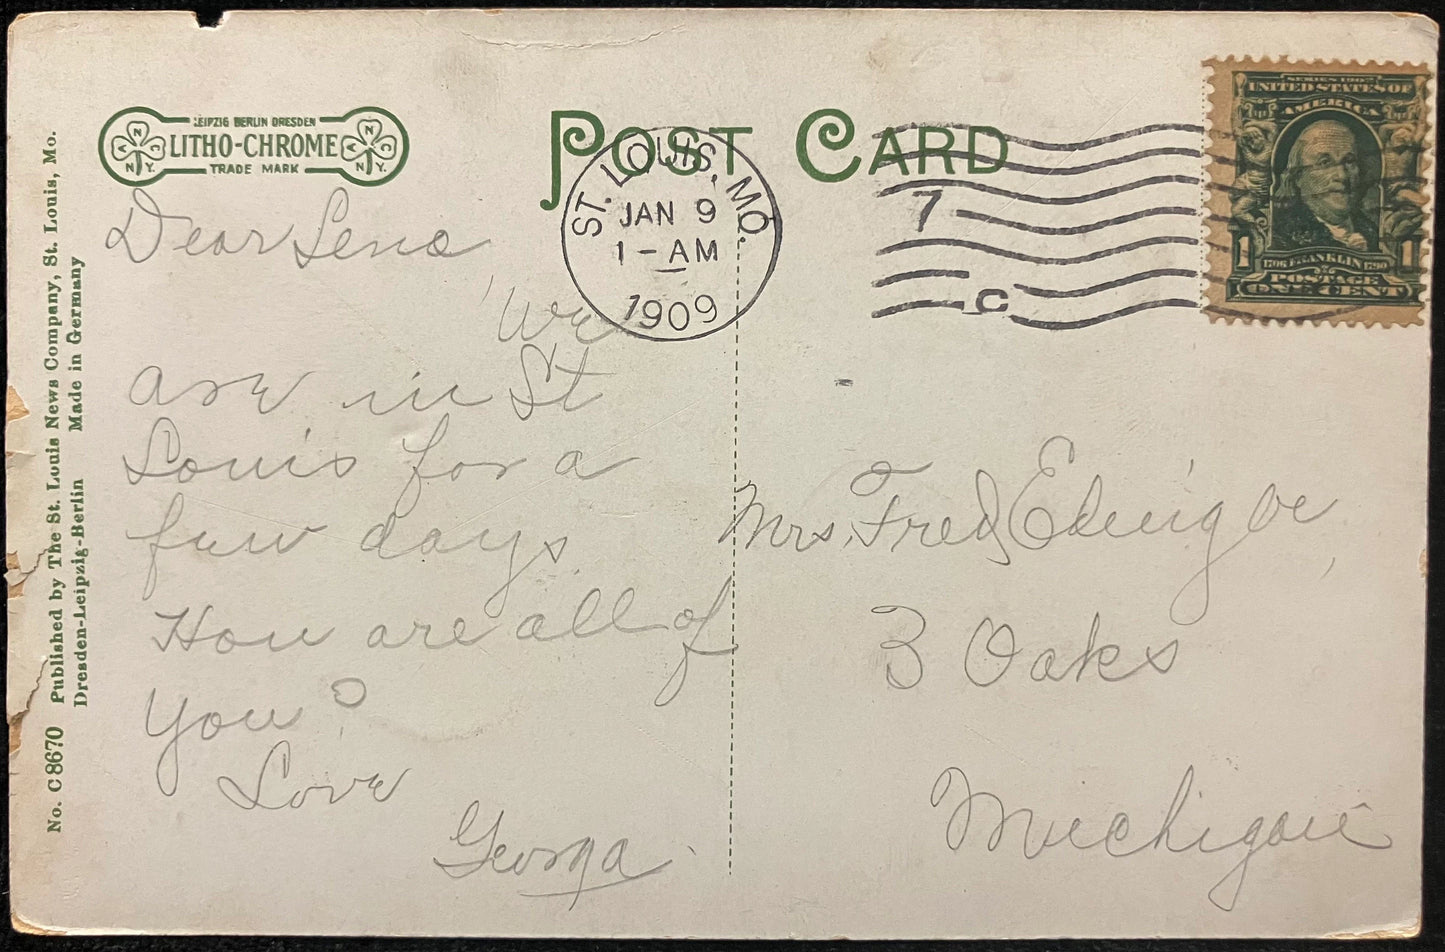 LEIPZIG BERLIN DRESDEN
LITHO-CHROME
TRADE MARK
A N C N.Y.
A N C N.Y.
POST CARD
ST. LOUIS, MO.
JAN 9
1-AM
1909
7
C
SERIES 1902
UNITED STATES OF
AMERICA
1 1
1706 FRANKLIN 1790
POSTAGE
ONE CENT
Dear Lena
We
are in St
Louis for a
few days.
How are all of
you?
Love
Georga
Mrs. Fred
3 Oaks
Michigan
No. C 8670 Published by The St. Louis News Company, St. Louis, Mo.
Dresden-Leipzig-Berlin Made in Germany